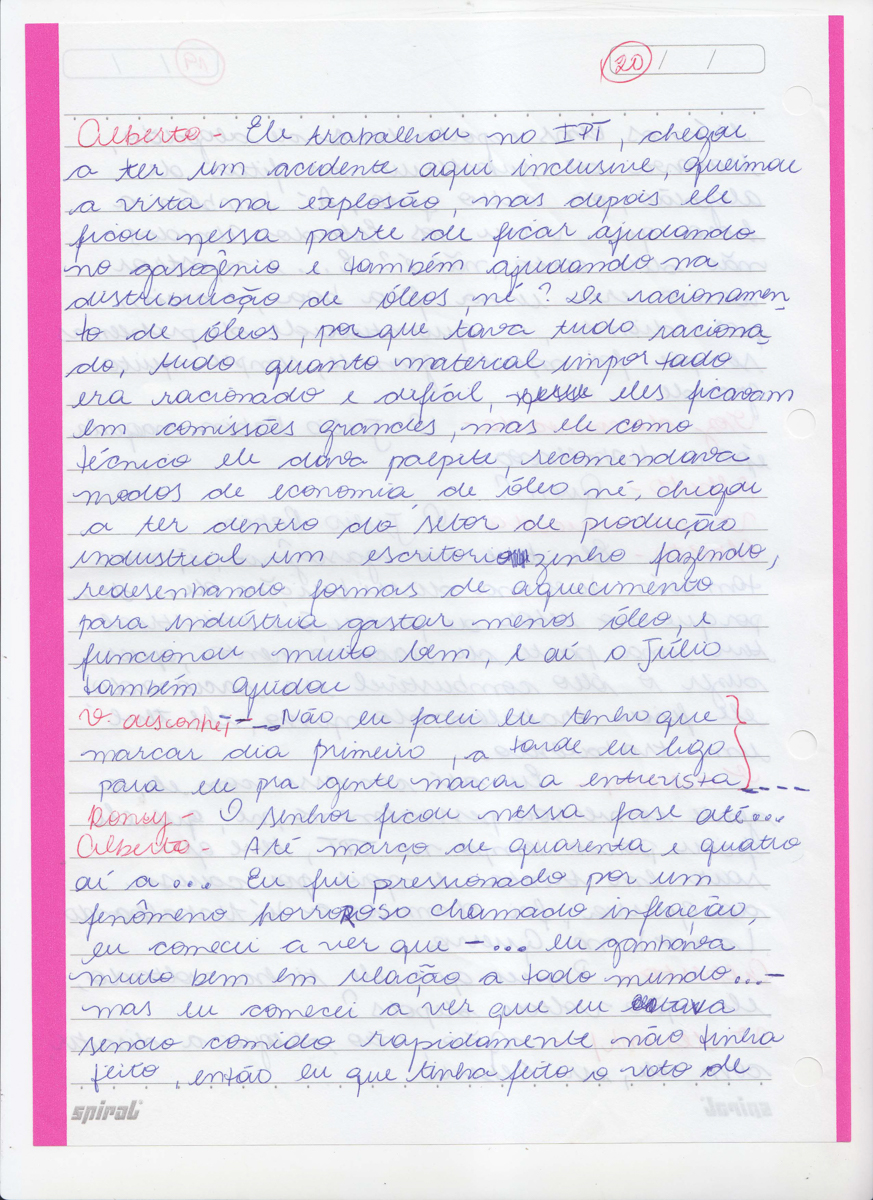 20 / /
Alberto - Ele trabalhou no IPT, chegou
a ter um acidente aqui inclusive, queimou
a vista na explosão, mas depois ele
ficou nessa parte de ficar ajudando
no gasogênio e também ajudando na
distribuição de óleos, né? De racionamen
to de óleos, porque tava tudo raciona-
do, tudo quanto material importado
era racionado e difícil, eles ficavam
em comissões grandes, mas ele como
técnico ele dava palpite, recomendava
modos de economia de óleo né, chegou
a ter dentro do setor de produção
industrial um escritoriozinho fazendo,
redesenhando formas de aquecimento
para indústria gastar menos óleo, e
funcionou muito bem, e aí o Júlio
também ajudou
V. desconhe - ... Não eu falei eu tenho que
marcar dia primeiro, a tarde eu ligo
para ele pra gente marcar a entrevista
Rony - O senhor ficou nessa fase até...
Alberto - Até março de quarenta e quatro
aí a... Eu fui pressionado por um
fenômeno horroroso chamado inflação,
eu comecei a ver que - ... eu ganhava
muito bem em relação a todo mundo... -
mas eu comecei a ver que eu estava
sendo comido rapidamente não tinha
jeito, então eu que tinha feito o voto de
spiral